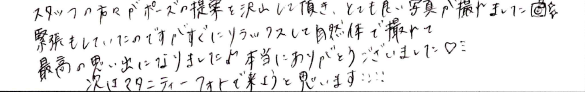 スタッフの方々がポーズの提案を沢山して頂き、とても良い写真が撮れました
緊張もしていたのですがすぐにリラックスして自然体で撮れて
最高の思い出になりました♪本当にありがとうございました♡
次はマタニティーフォトで来ようと思います